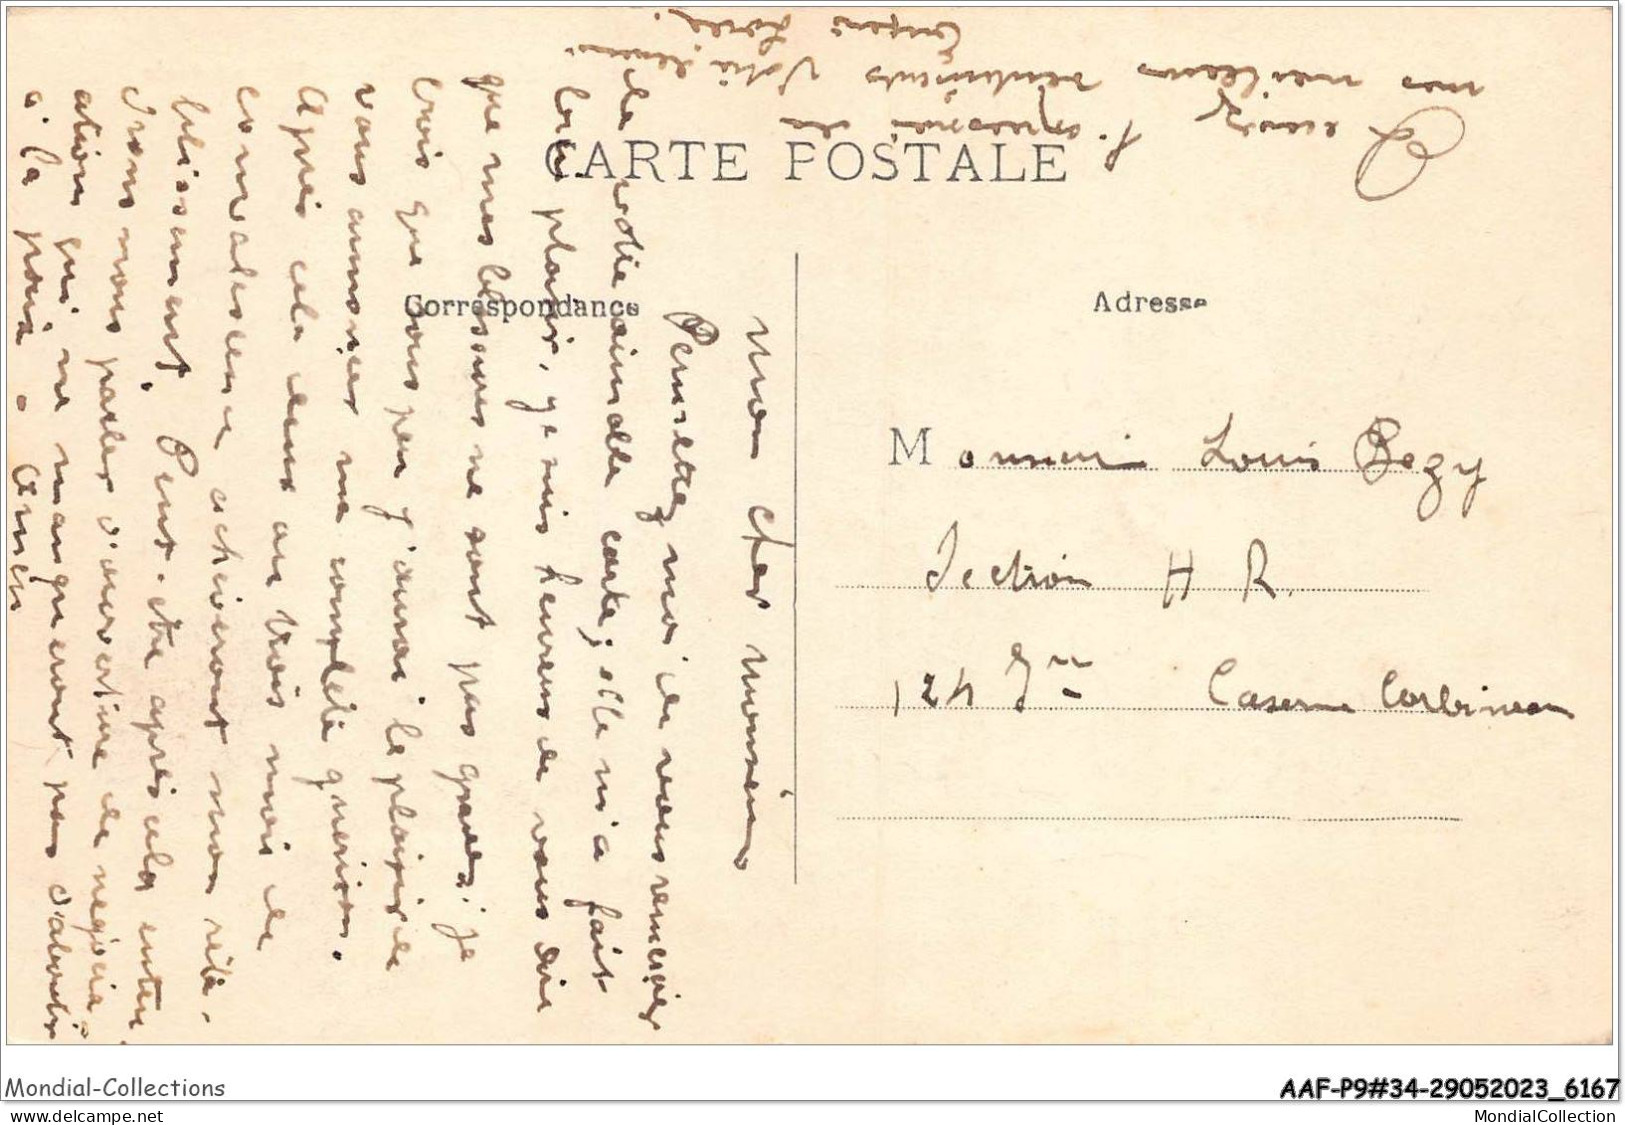 CARTE POSTALE
Correspondance
Adresse
Monsieur Louis Bozy
Section H R.
124 Caserne Corbineau
Mon cher monsieur
Permettez moi de vous remercier
de votre aimable carte; elle m'a fait
bien plaisir, je suis heureux de vous dire
que mes blessures ne sont pas graves; je
crois que sous peu j'aurai le plaisir de
vous annoncer ma complète guérison.
Après cela deux ou trois mois de
convalescence achèveront mon réta-
blissement. Peut-être après cela enten
drons nous parler d'ouverture de négocia-
ations qui ne manqueront pas d'aboutir
à la paix. Amen
Recevez l'expression de
mes meilleurs sentiments Votre
Mondial-Collections
www.delcampe.net
AAF-P9#34-29052023_6167
MondialCollection